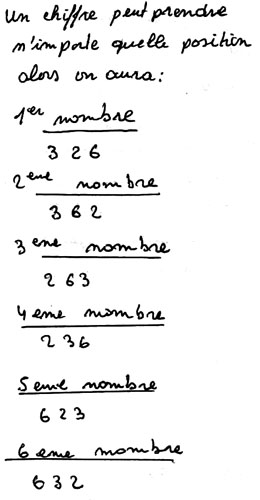 Un chiffre peut prendre
n'importe quelle position
alors on aura :
1er nombre
3 2 6
2eme nombre
3 6 2
3eme nombre
2 6 3
4eme nombre
2 3 6
5eme nombre
6 2 3
6eme nombre
6 3 2